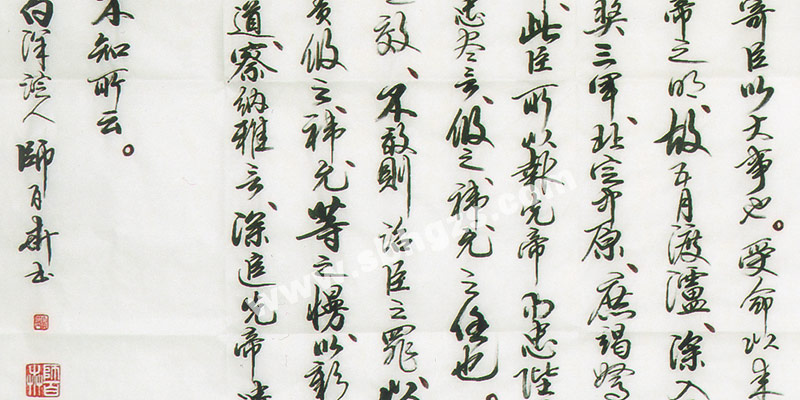 寄臣以大事也。受命以来
帝之明、故五月渡瀘、深入
奖三军、北定中原、庶竭驽
此臣所以報先帝而忠陛
忠尽言、攸之祎允之任也。
之效、不效則治臣之罪、以
责攸之祎允等之慢以彰
道、察纳雅言、深追先帝
不知所云。
白洋淀人 師百书